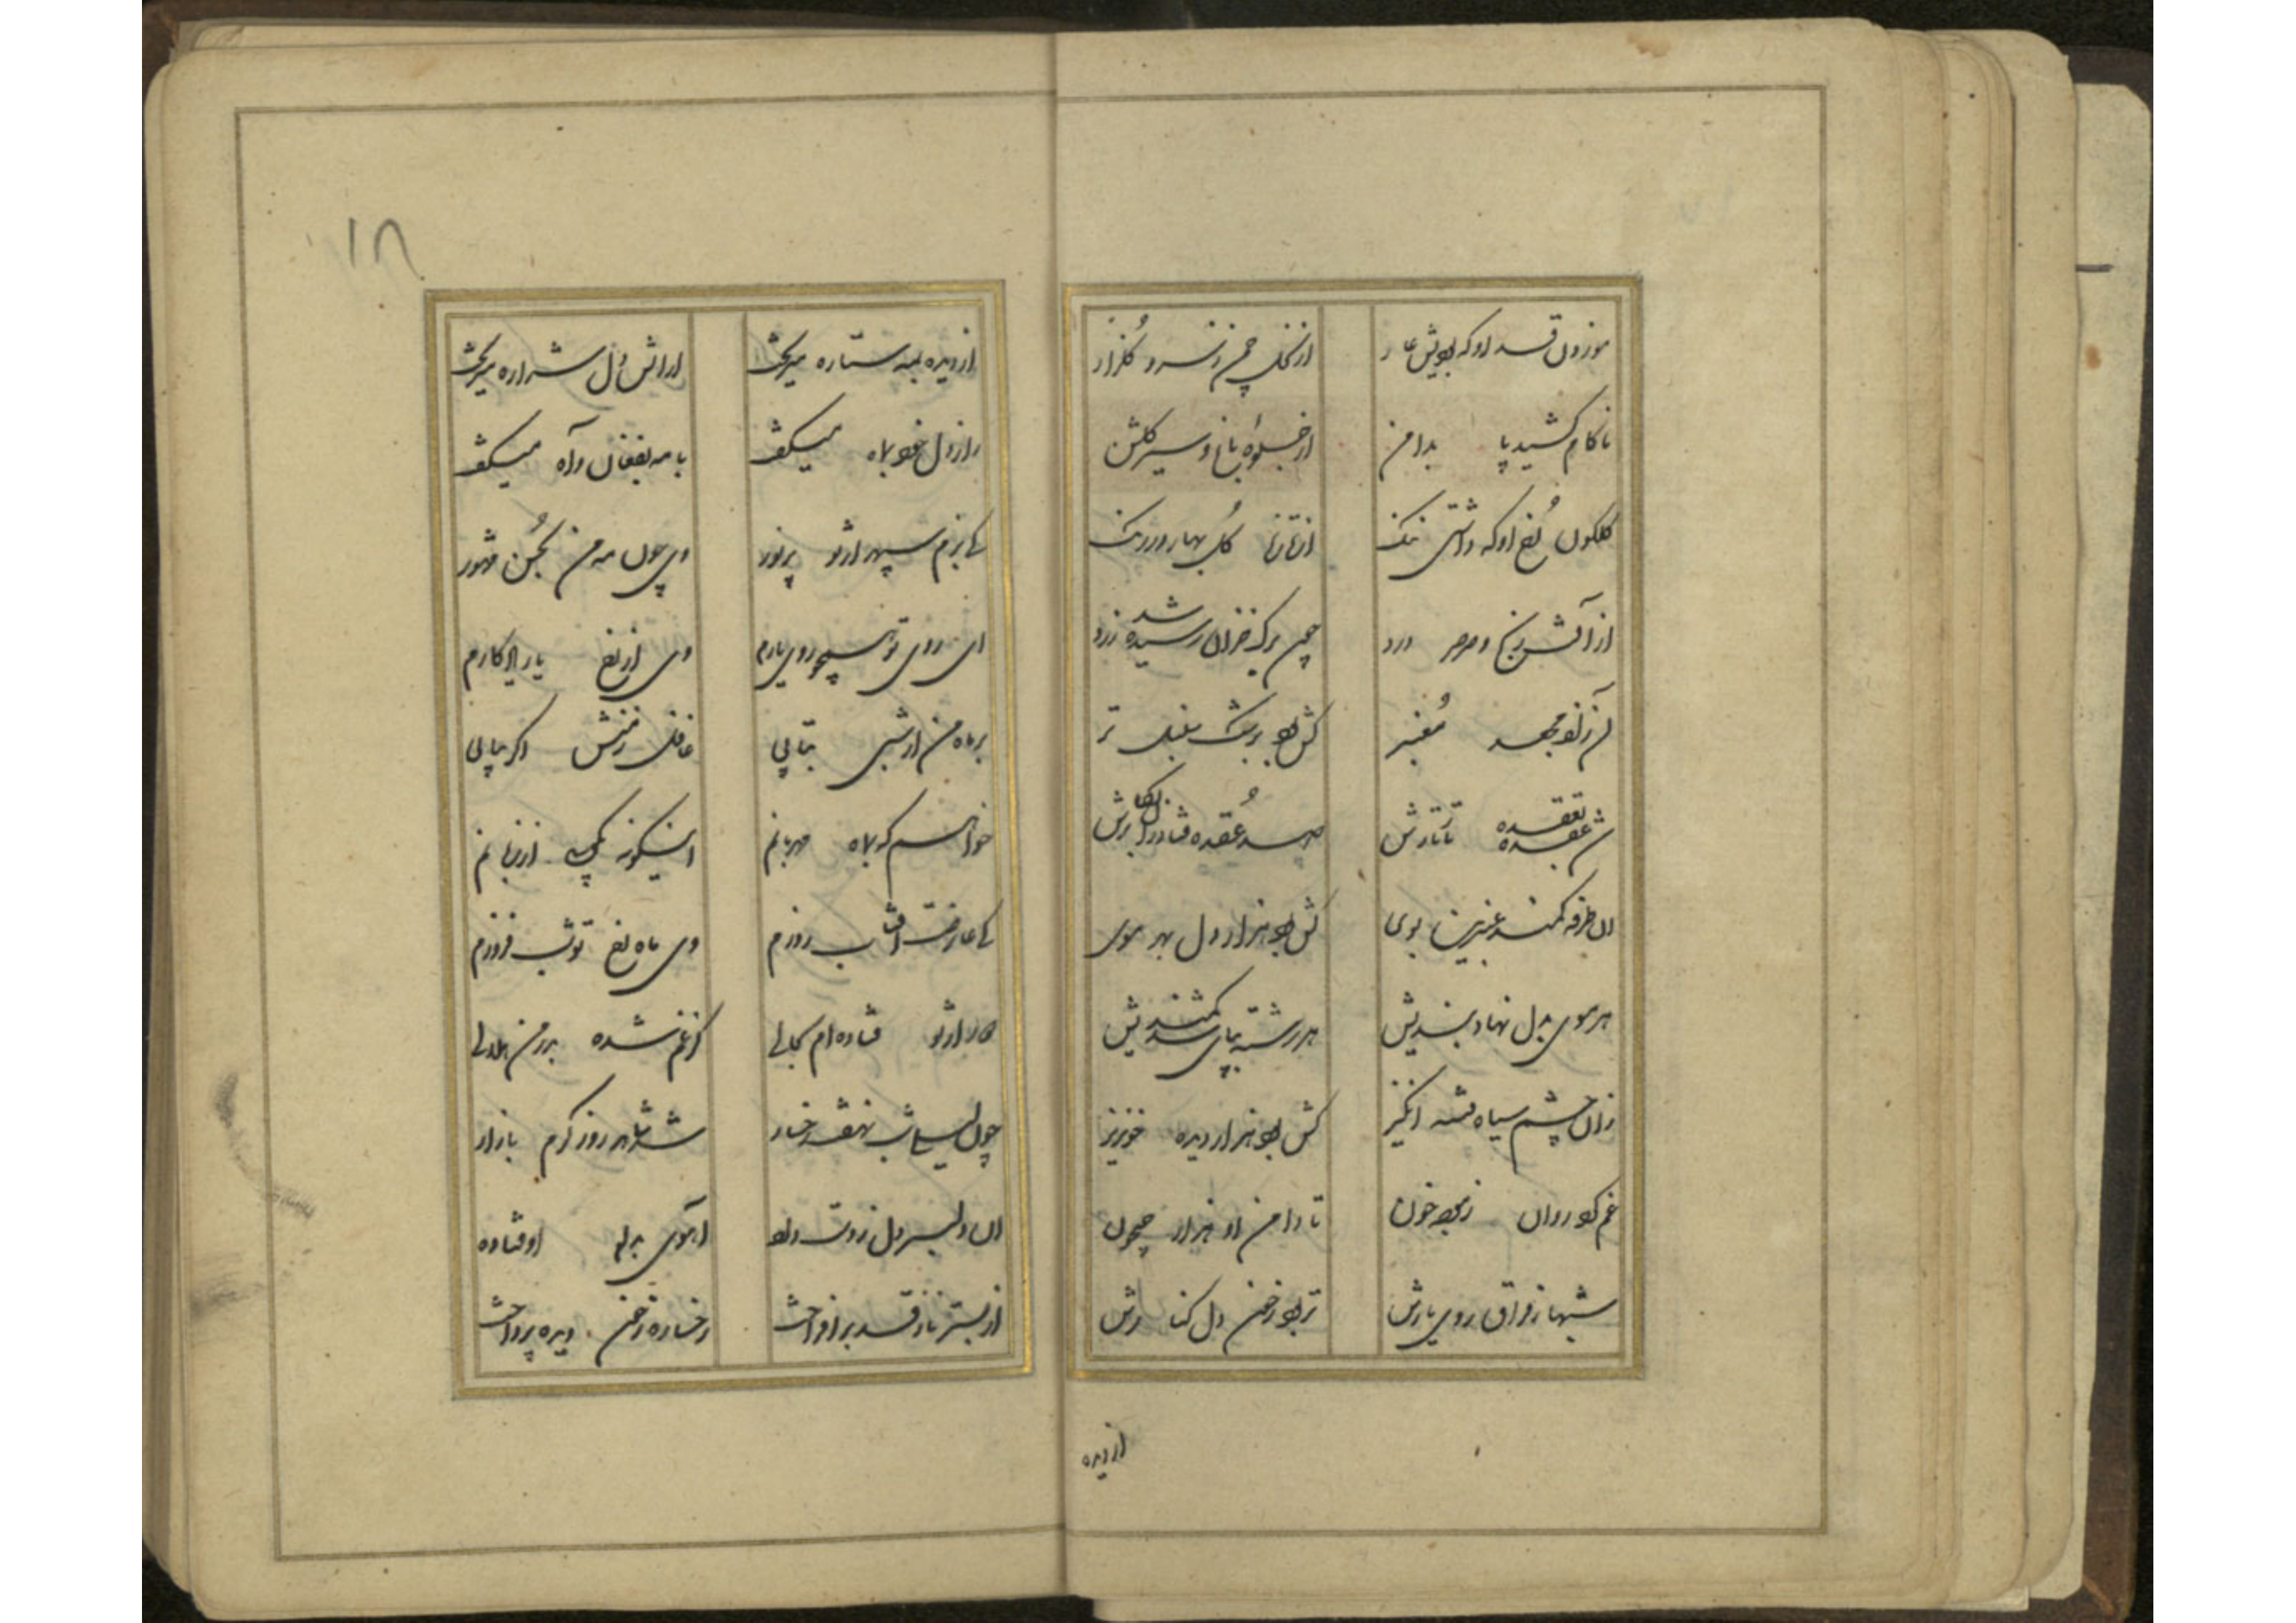 موزون قد او که بودیش عار
از نخل چمن ز سرو گلزار
ناکام کشید پا بدامن
از جلوه باغ و سیر گلشن
گلگون رخ او که داشتی ننگ
از تازه گل بهار در رنگ
از آتش رنج و صرصر درد
چون برگ خزان رسیده شد زرد
آن زلف مجعد معنبر
کش بود بر سنبل تر
شد عقده تعقده تا تارش
صد عقده فتاد در دل کارش
آن طرفه کمند عنبرین بوی
کش بود هزار دل بهر موی
هر موی بدل نهاد بندیش
هر رشته بپای شد کمندیش
زان چشم سیاه فتنه انگیز
کش بود هزار دیده خونریز
غم کرد روان ز دیده خون
تا دامن او هزار جیحون
شبها ز فراق روی یارش
تر بود ز خون دل کنارش
از دیده
۱۸
از دیده همه ستاره میریخت
از آتش دل شراره میریخت
راز دل خود بماه میگفت
با مه بفغان و آه میگفت
کای بزم سپهر از تو پرنور
وی چون مه من بحسن مشهور
ای روی تو همچو روی یارم
وی از رخ یار یادگارم
بر ماه من ار شبی بتابی
غافل ز منش اگر بیابی
خواهم که بماه مهربانم
اینگونه بگویی از زبانم
کای عارضت آفتاب روزم
وی ماه رخ تو شب فروزم
دور از تو فتاده ام بحالی
کز غم شده بدر من هلالی
چون لیلی شب نهفت رخسار
شد شاهد روز گرم بازار
آن دلبر دل ز دست داده
آهوی بدام اوفتاده
از بستر ناز قد برافراخت
رخساره ز خون دیده پرداخت